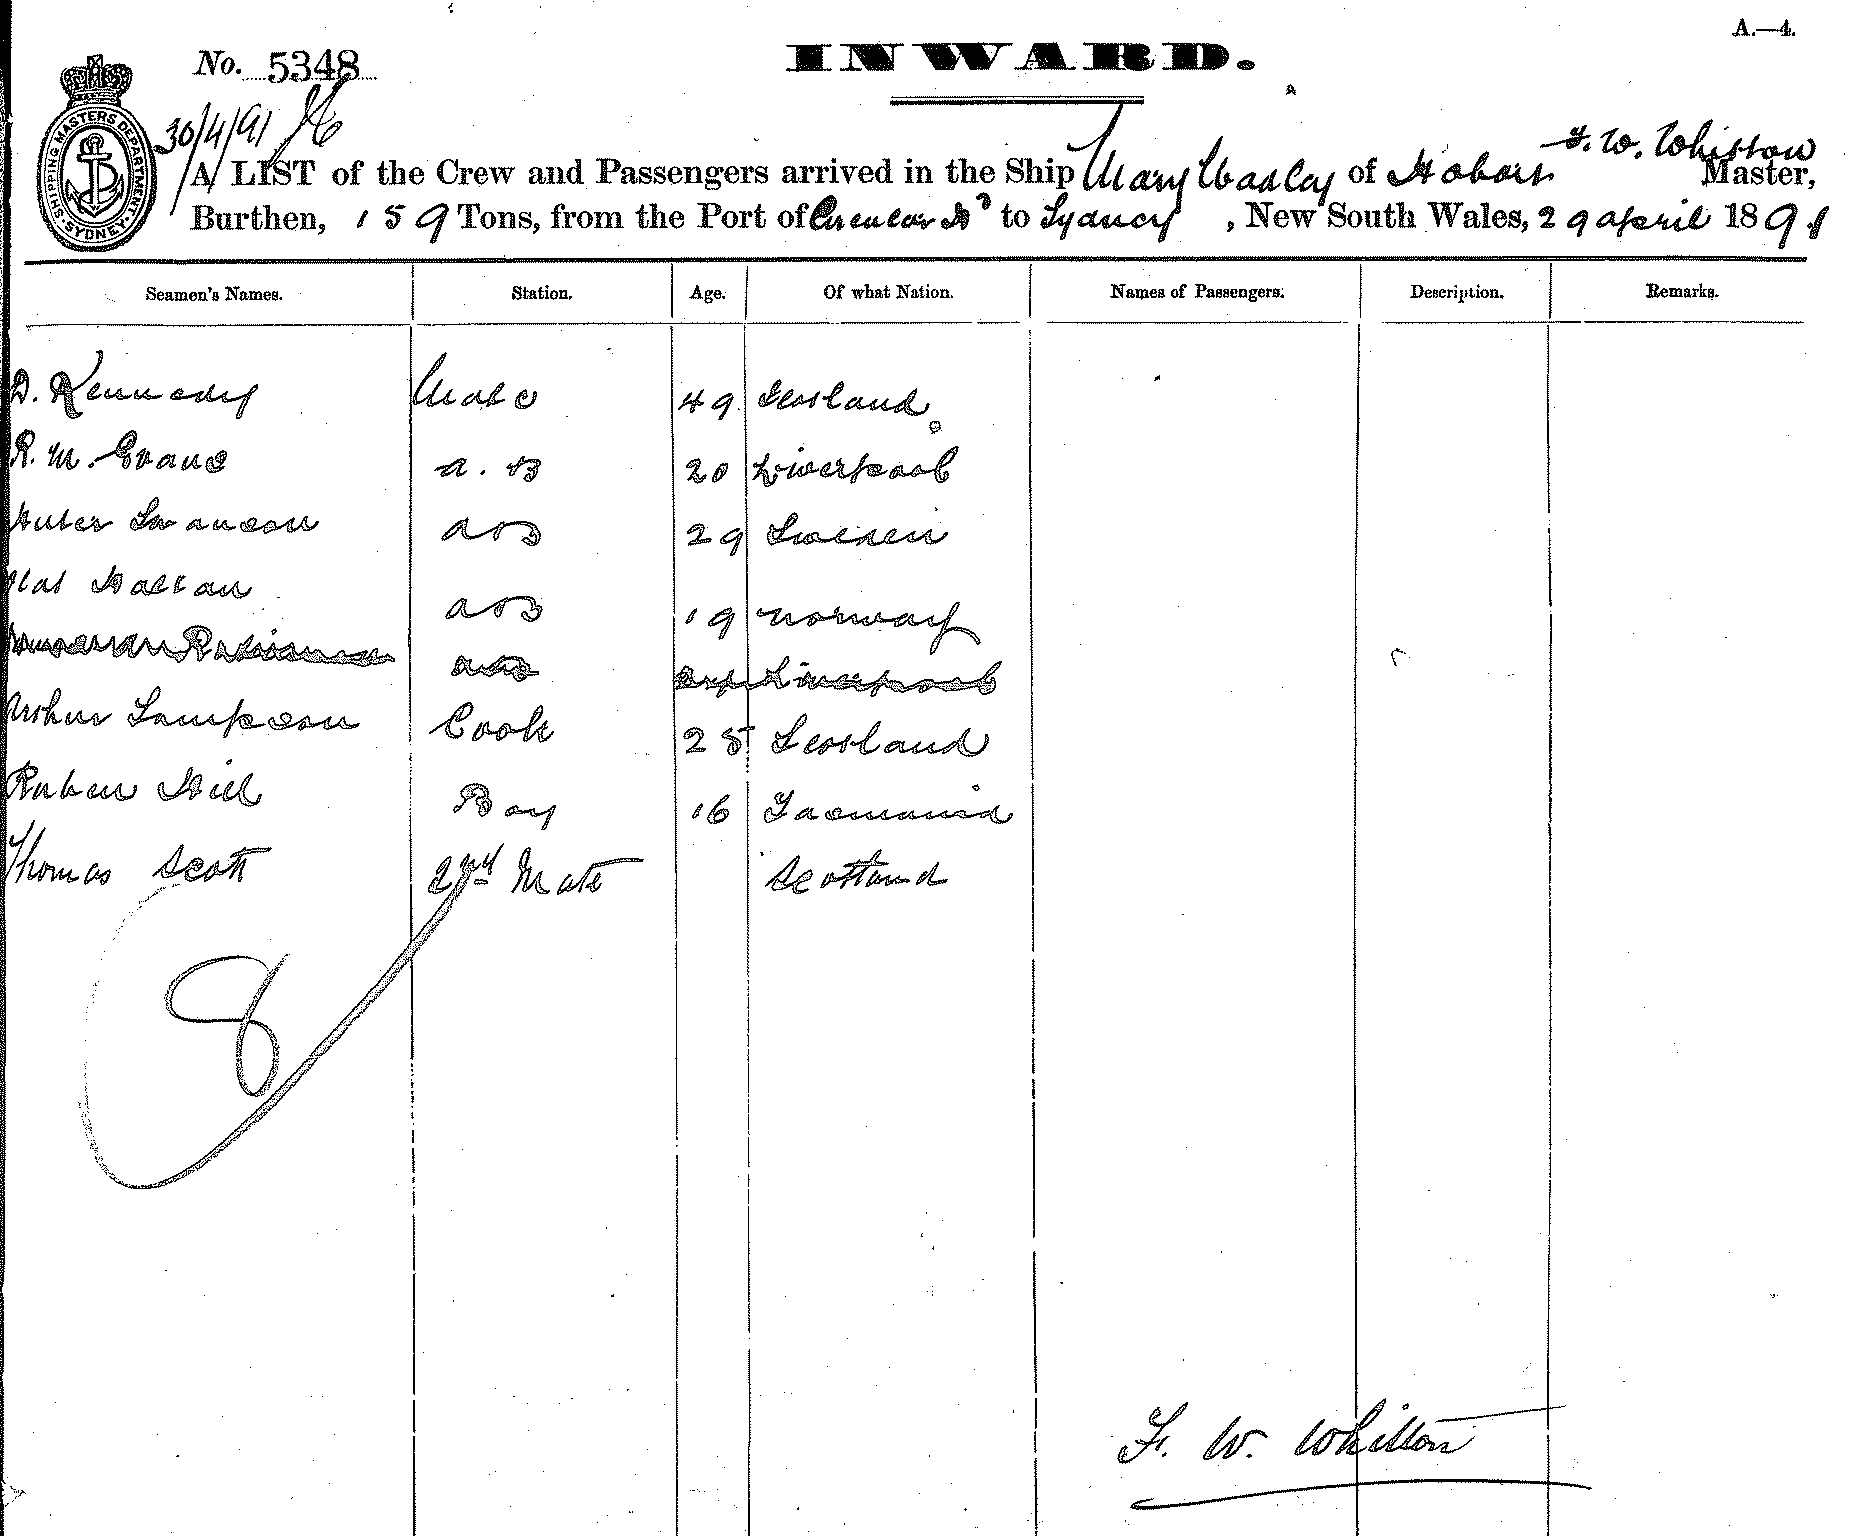 A.—4.
No. 5348
INWARD.
30/4/91
SHIPPING MASTERS DEPARTMENT SYDNEY
F. W. Whitton
A LIST of the Crew and Passengers arrived in the Ship Mary Wadley of Hobart Master,
Burthen, 159 Tons, from the Port of Circular Hd to Sydney, New South Wales, 29 april 1891
Seamen's Names. Station. Age. Of what Nation. Names of Passengers. Description. Remarks.
D. Kennedy Mate 49 Scotland
R. M. Evans a. B 20 Liverpool
Swanson a B 29 Sweden
a B 19 norway
Liverpool
Arthur Sampson Cook 25 Scotland
Ruben Hill Boy 16 Tasmania
Thomas Scott 2nd Mate Scotland
8
F. W. Whitton